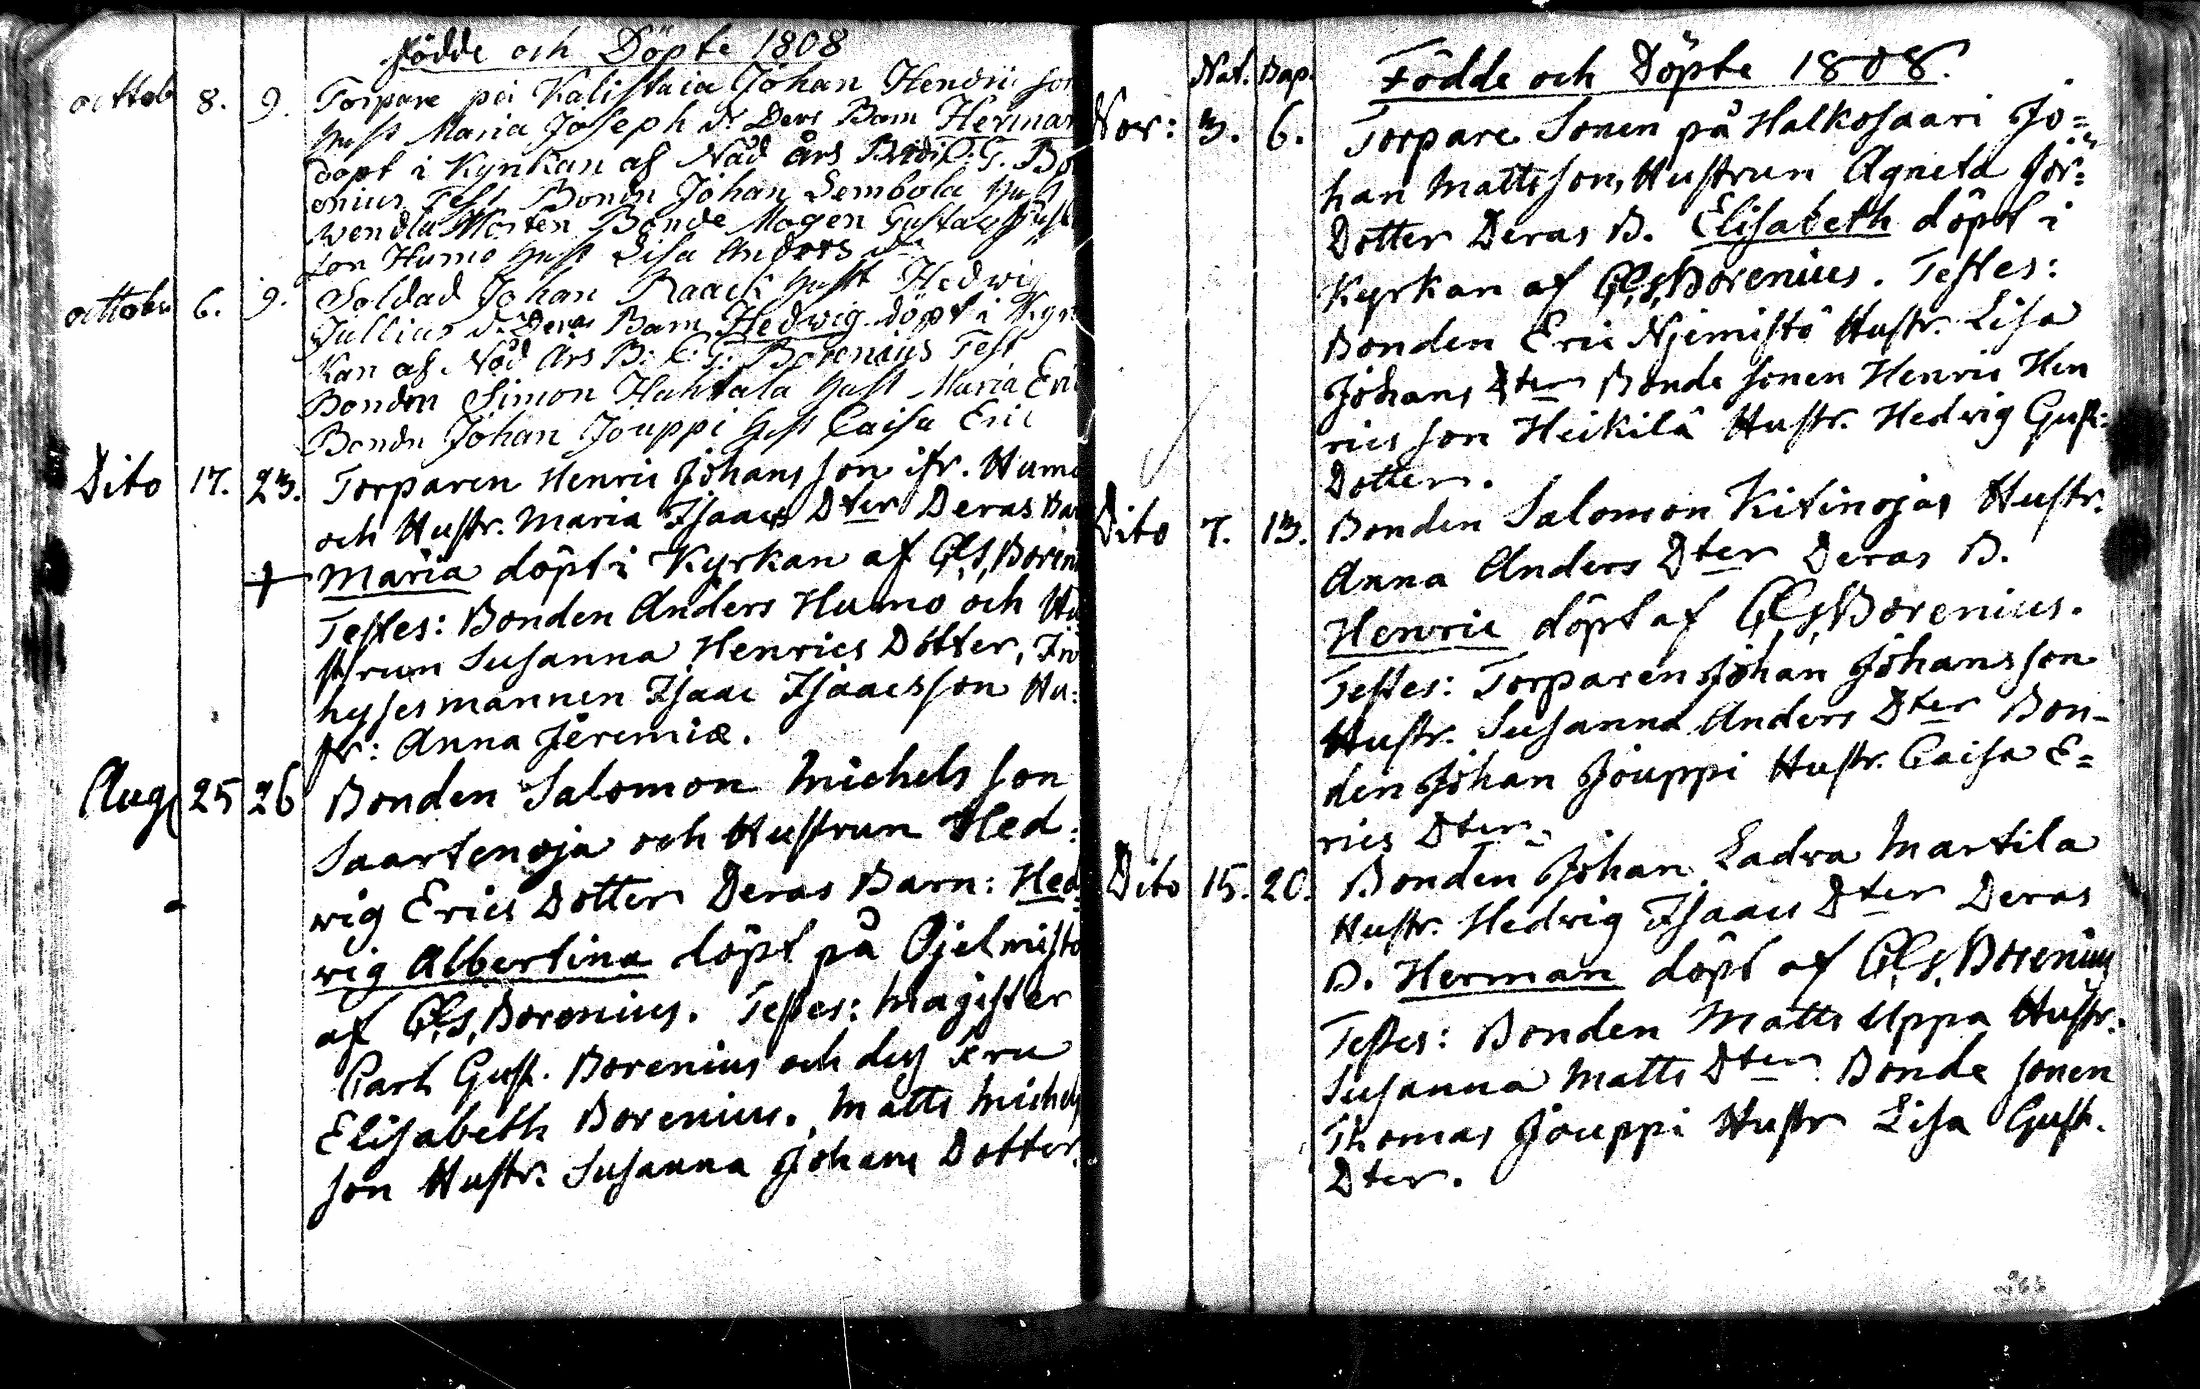 Födde och Döpte 1808
octtob 8. 9. Torpare på Kalistaia Johan Hendric son
hust Maria Joseph dr Ders Barn Herman
döpt i Kyrkan af Nåd års Bredi C. G. Bo
enius Test Bonden Johan Sembola hust
Wendla Morten Bonde Mågen Gustaf
son Humo hust Lisa Anders dr
octtober 6. 9. Soldad Johan Raack hust Hedwig
Jullius dr Deras Barn Hedwig döpt i Kyr
kan af Nåd Års B: C: G: Borenius Test
Bonden Simon Huhtala hust Maria Eri
Bonden Johan Jouppi hust Caisa Eric
Dito 17. 23. Torparen Henric Johans son ifr. Humo
och Hustr. Maria Isaacs Dter Deras Bar
+ Maria döpt i Kyrkan af C. G. s. Boreni
Testes: Bonden Anders Humo och Hu
strun Susanna Henrics Dotter, In
hysesmannen Isaac Isaacsson Hu:
str: Anna Jeremiæ.
Aug 25 26 Bonden Salomon Michels son
Saartenoja och Hustrun Hed:
wig Erics Dotter Deras Barn: Hed
wig Albertina döpt på Ojelmisto
af C. G. s. Borenius. Testes: Magister
Carl Gust. Borenius och dess Fru
Elisabeth Borenius. Matts Michels
son Hustr. Susanna Johans Dotter.
Nat. Bap. Födde och Döpte 1808.
Nov: 3. 6. Torpare Sonen på Halkosaari Jo=
han Mattsson, Hustrun Agneta Jör=
Dotter Deras B. Elisabeth döpt i
Kyrkan af C. G. s. Borenius. Testes:
Bonden Eric Njemistö Hustr. Lisa
Johans Dter Bonde sonen Henric Hen
rics son Heikilä Hustr. Hedwig Gust:
Dotter.
Dito 7. 13. Bonden Salomon Kitinojas Hustr.
Anna Anders Dter Deras B.
Henric döpt af C. G. s. Borenius.
Testes: Torparen Johan Johansson
Hustr. Susanna Anders Dter Bon-
den Johan Jouppi Hustr. Caisa E=
rics Dter.
Dito 15. 20. Bonden Johan Ladva Martila
Hustr. Hedwig Isaacs Dter Deras
B. Herman döpt af C. G. s. Borenius
Testes: Bonden Matts Uppa Hustr.
Susanna Matts Dter Bonde sonen
Thomas Jouppi Hustr Lisa Gust.
Dter.